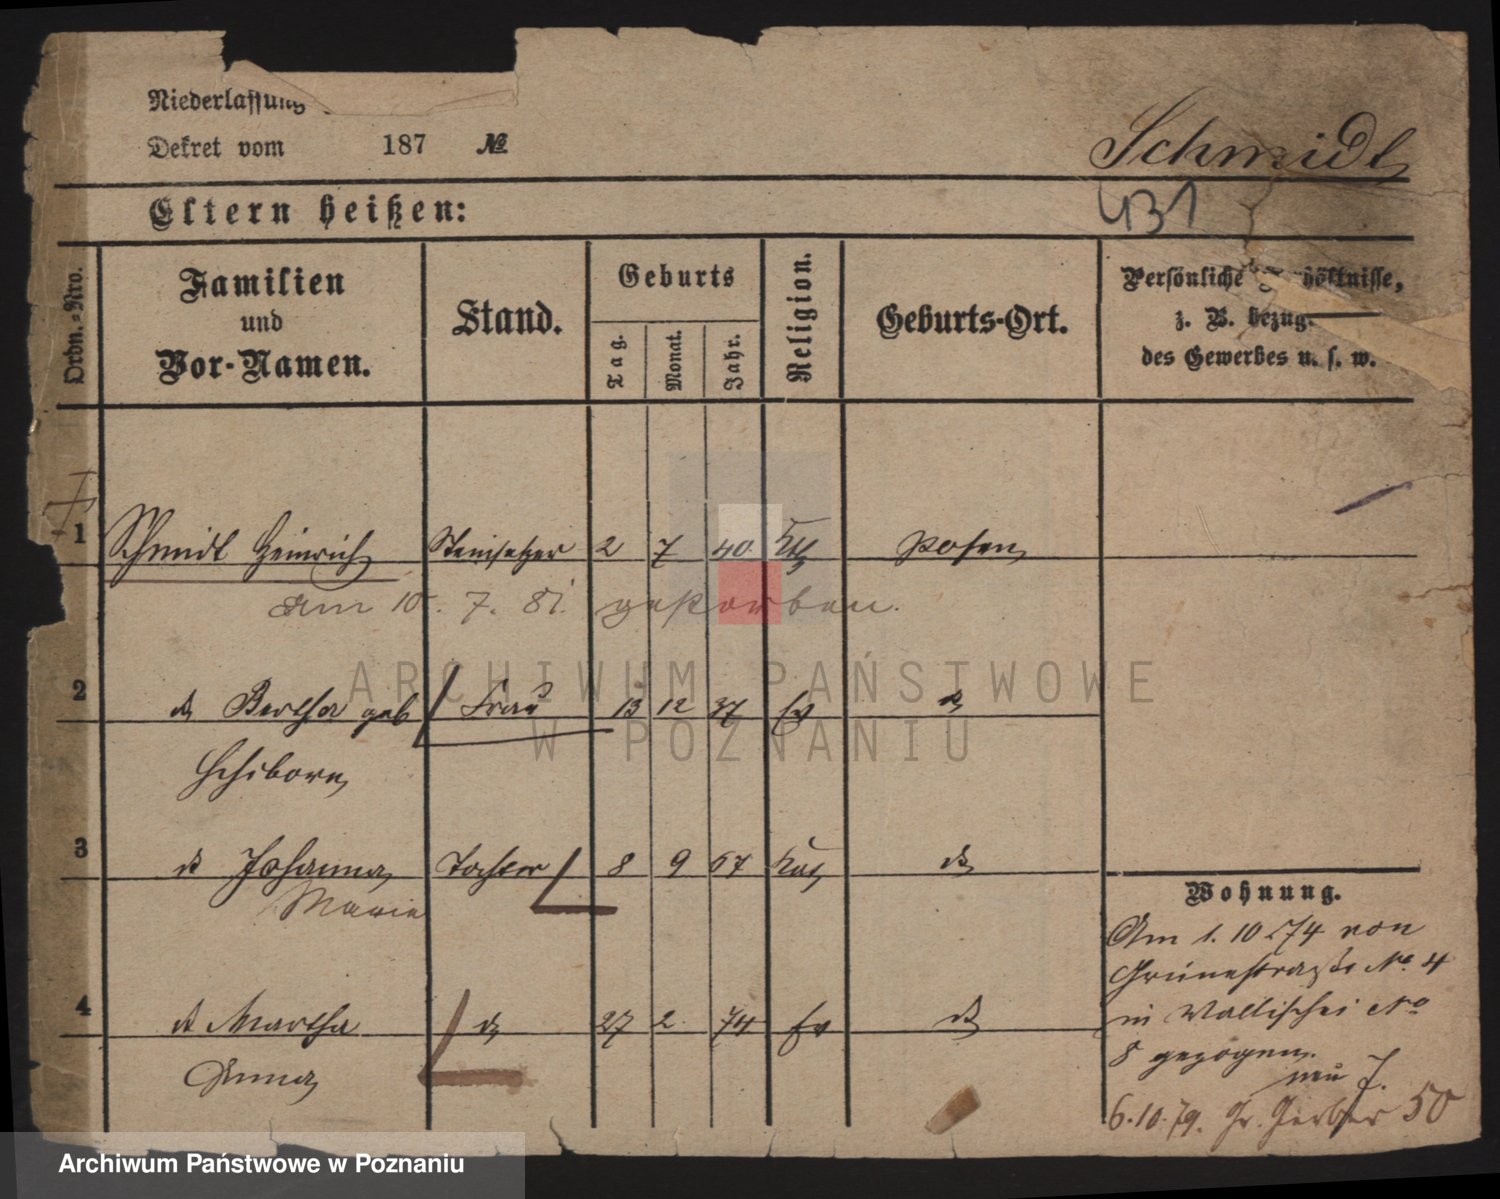 Niederlassung
Dekret vom 187 №
Schmidt
Eltern heißen:
431
Ordn.-Nro.
Familien und Vor-Namen.
Stand.
Geburts
Tag.
Monat.
Jahr.
Religion.
Geburts-Ort.
Persönliche
z. B. bezug.
des Gewerbes u. s. w.
1 Schmidt Heinrich Steinsetzer 2 7 40. Kth Posen
am 10. 7. 81. gestorben.
2 do Bertha geb Frau 13 12 37 Ev do
3 do Johanna Tochter 8 9 67 Kat do
Marie
Wohnung.
Am 1. 10 74 von
Grünestraße No. 4
in Wallischei No
8 gezogen.
neu 7.
4 do Martha do 27 2. 74 Ev do
Anna
6.10.79. Gr. Gerber 50
ARCHIWUM PAŃSTWOWE
W POZNANIU
Archiwum Państwowe w Poznaniu